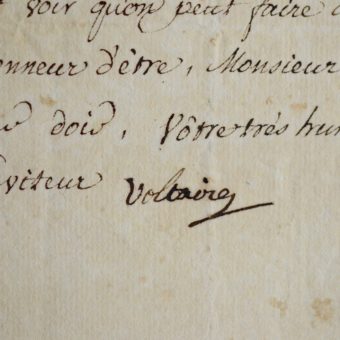 voir quon peut faire
onneur d'être, Monsieur
dois, Vôtre trés hum
viteur Voltaire